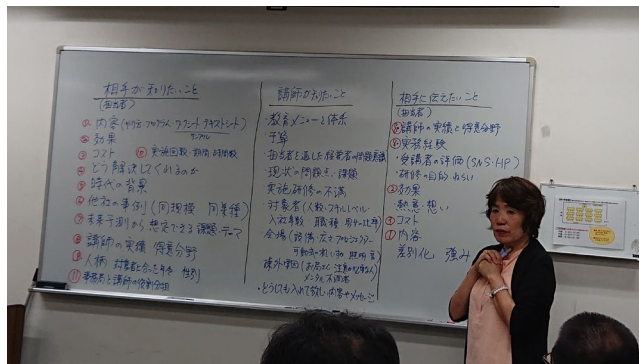 相手が知りたいこと
(担当者)
① 内容(やり方・プログラム・ワークシート テキストシート)
サンプル
② 効果
③ コスト ⑩ 実施回数・期間・時間数
④ どう解決してくれるのか
⑤ 時代の背景
⑥ 他社の事例(同規模 同業種)
⑦ 未来予測から想定できる課題・テーマ
⑧ 講師の実績 得意分野
⑨ 人柄 対象者に合った年令 性別
⑪ 事務局と講師の役割分担
講師が知りたいこと
・教育メニューと体系
・予算
・担当者を通した経営者の問題意識
・現状の問題点・課題
・実施研修の不満
・対象者(人数・スキルレベル
入社年数 職種 男女比率)
・会場(設備・広さ プロジェクター
可動式の机・いす 照明 音)
・どうしても入れて欲しい内容やメッセージ
相手に伝えたいこと
(担当者)
講師の実績と得意分野
実務経験
・受講者の評価(SNS・HP)
・研修の目的・ねらい
② 効果
熱意・想い
③ コスト
① 内容
差別化 強み